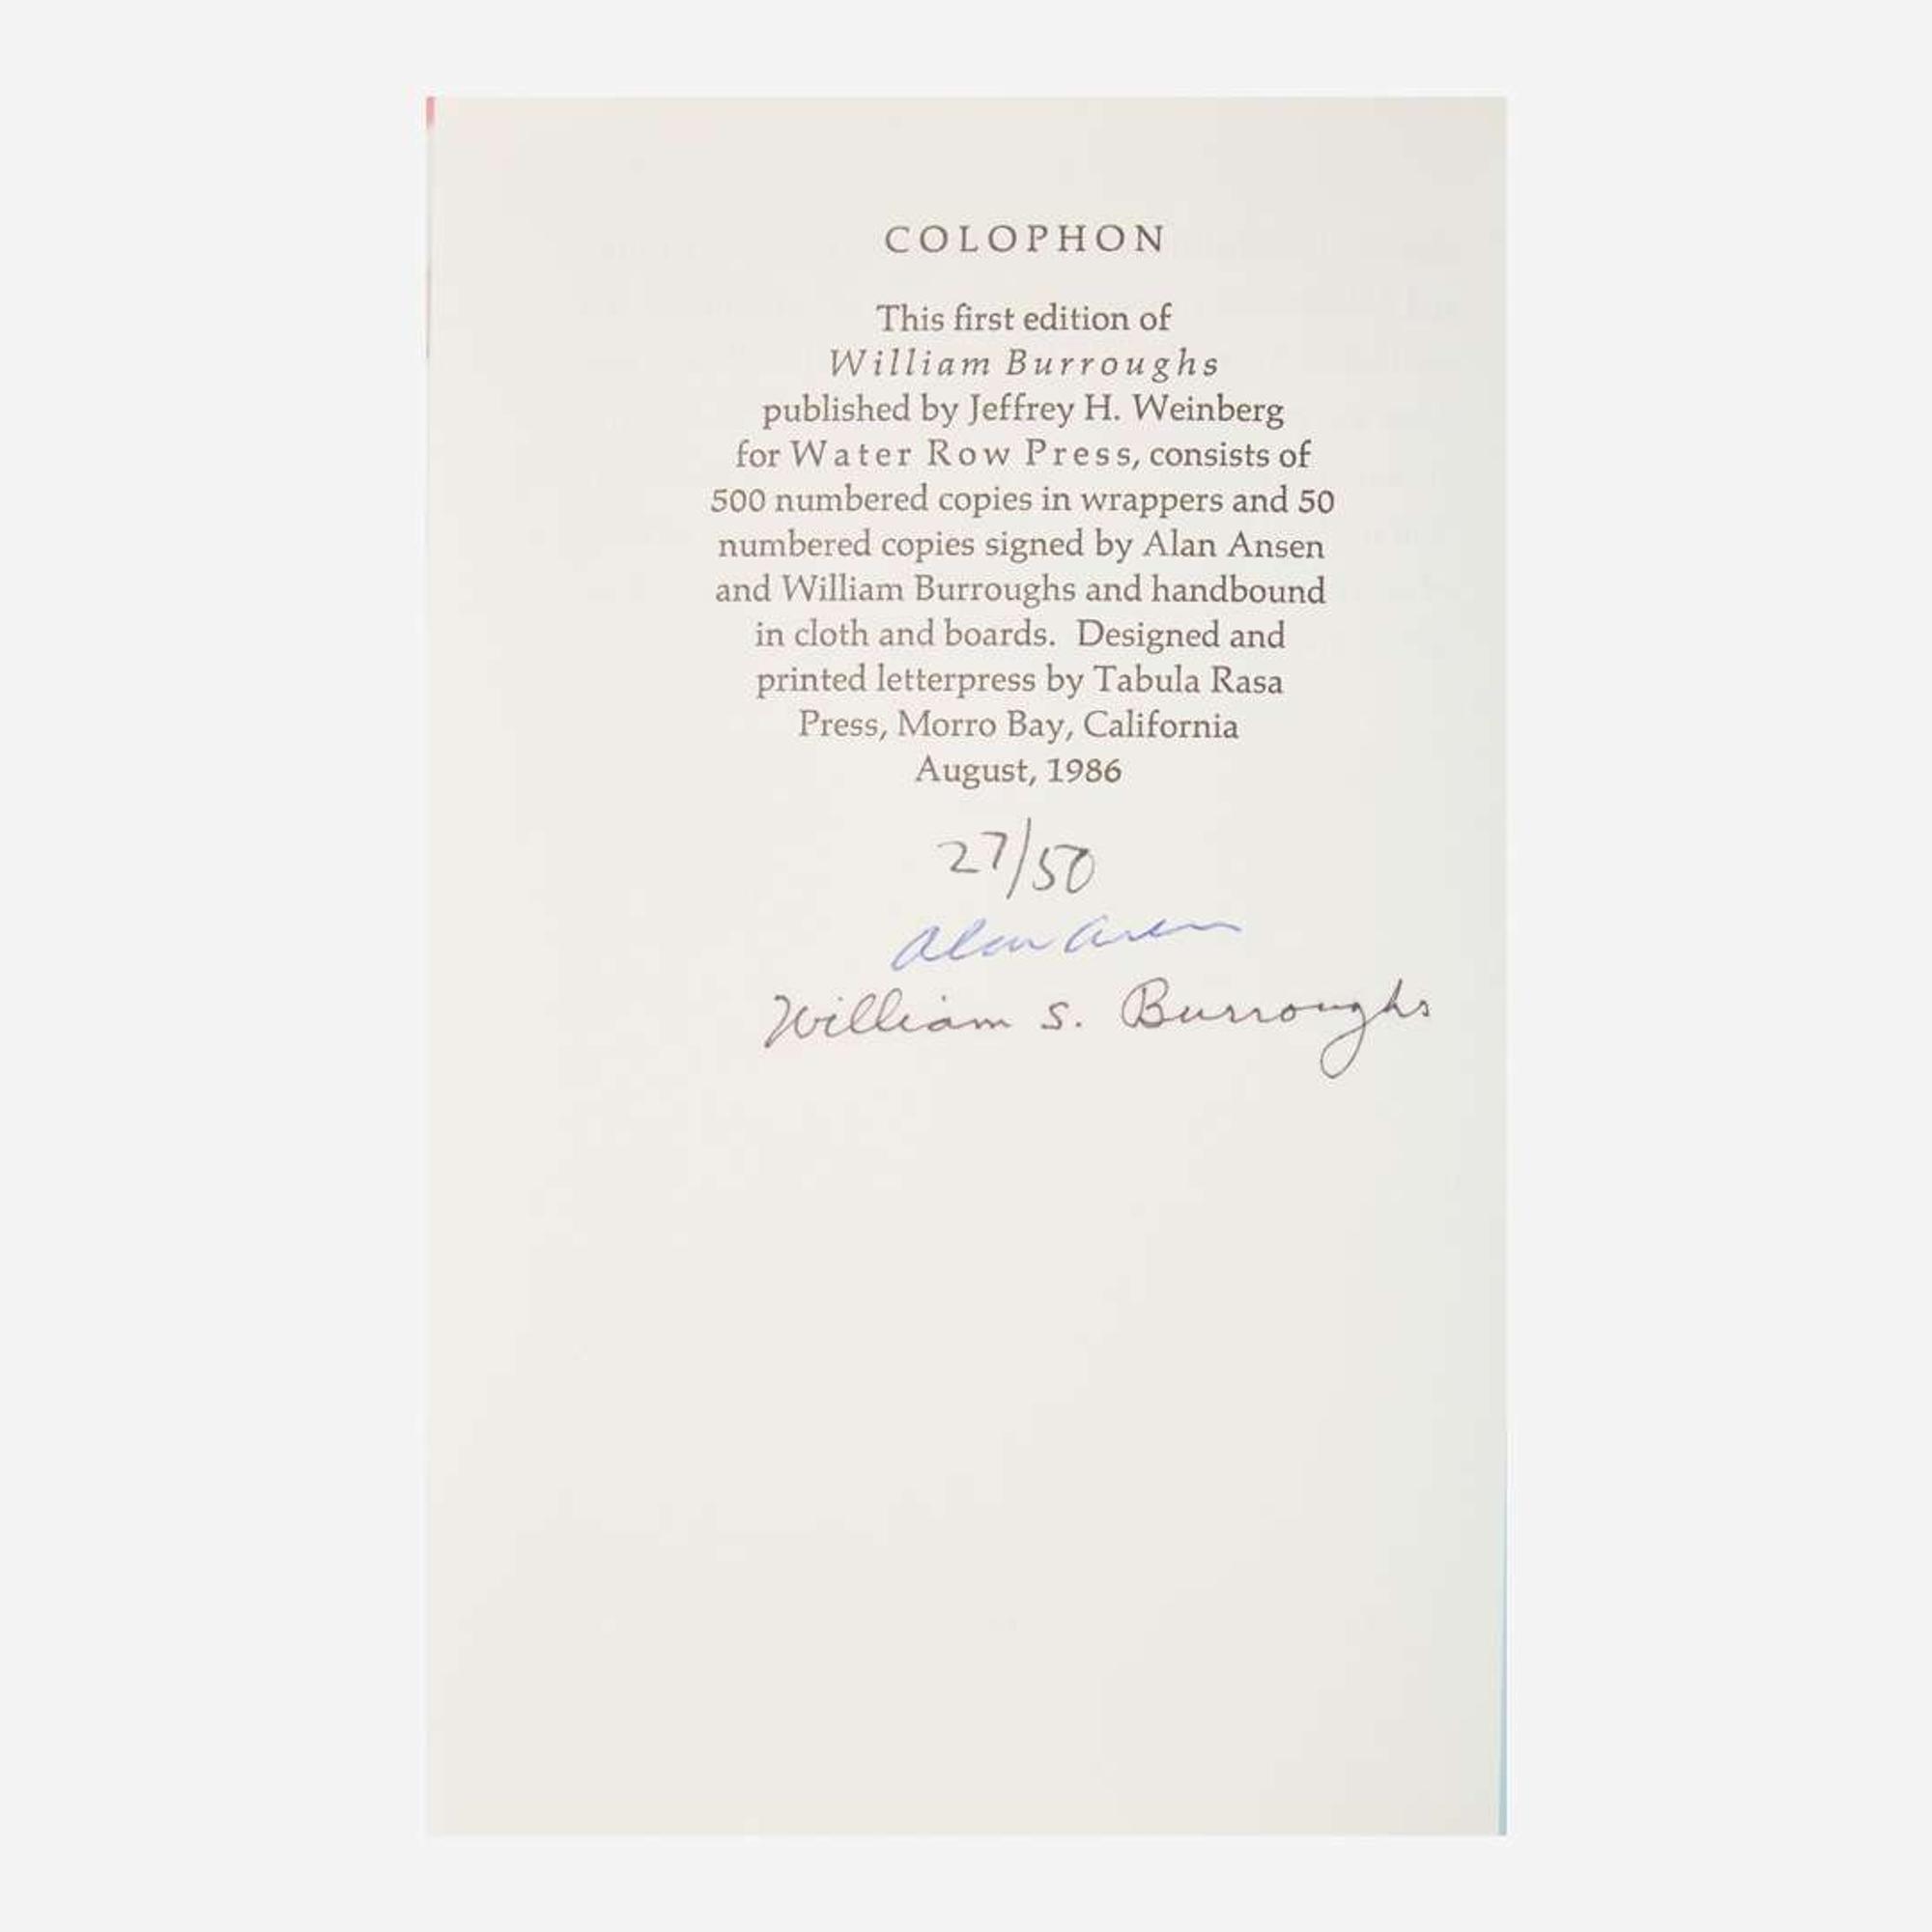 COLOPHON
This first edition of
William Burroughs
published by Jeffrey H. Weinberg
for Water Row Press, consists of
500 numbered copies in wrappers and 50
numbered copies signed by Alan Ansen
and William Burroughs and handbound
in cloth and boards. Designed and
printed letterpress by Tabula Rasa
Press, Morro Bay, California
August, 1986
27/50
Alan Ansen
William S. Burroughs